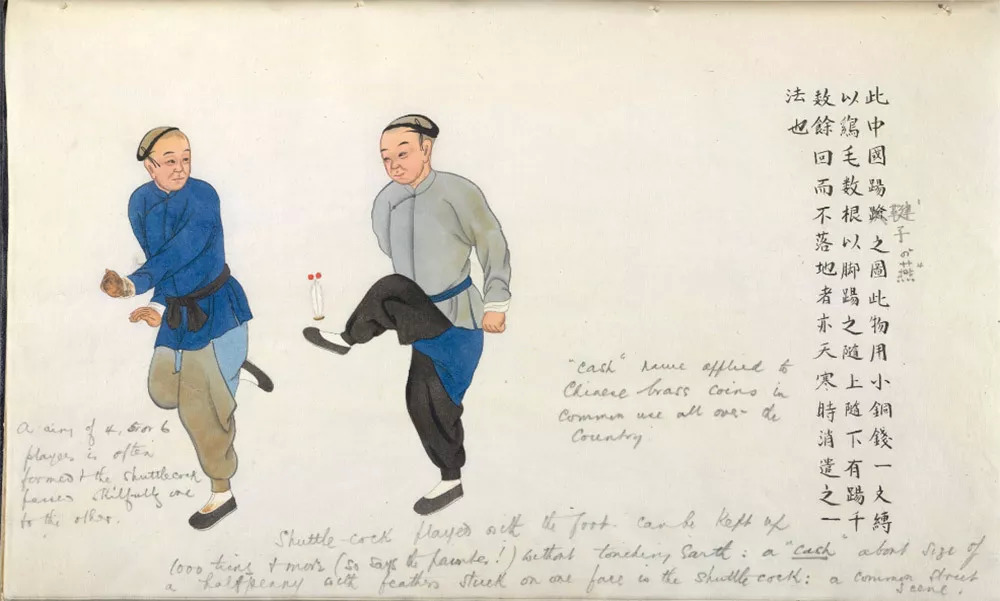 此中國踢之圖此物用小銅錢一文縛
以鷄毛数根以脚踢之隨上隨下有踢千
数餘回而不落地者亦天寒時消遣之一
法也
毽子 燕
"Cash" name applied to
Chinese brass coins in
Common use all over the
Country
A ring of 4, 5 or 6
players is often
formed & the shuttlecock
passes skilfully one
to the other.
Shuttle-cock played with the foot. can be kept up
1000 times & more (so says the painter!) without touching Earth: a "Cash" about size of
a halfpenny with feathers stuck on one face is the shuttlecock: a common street
scene.